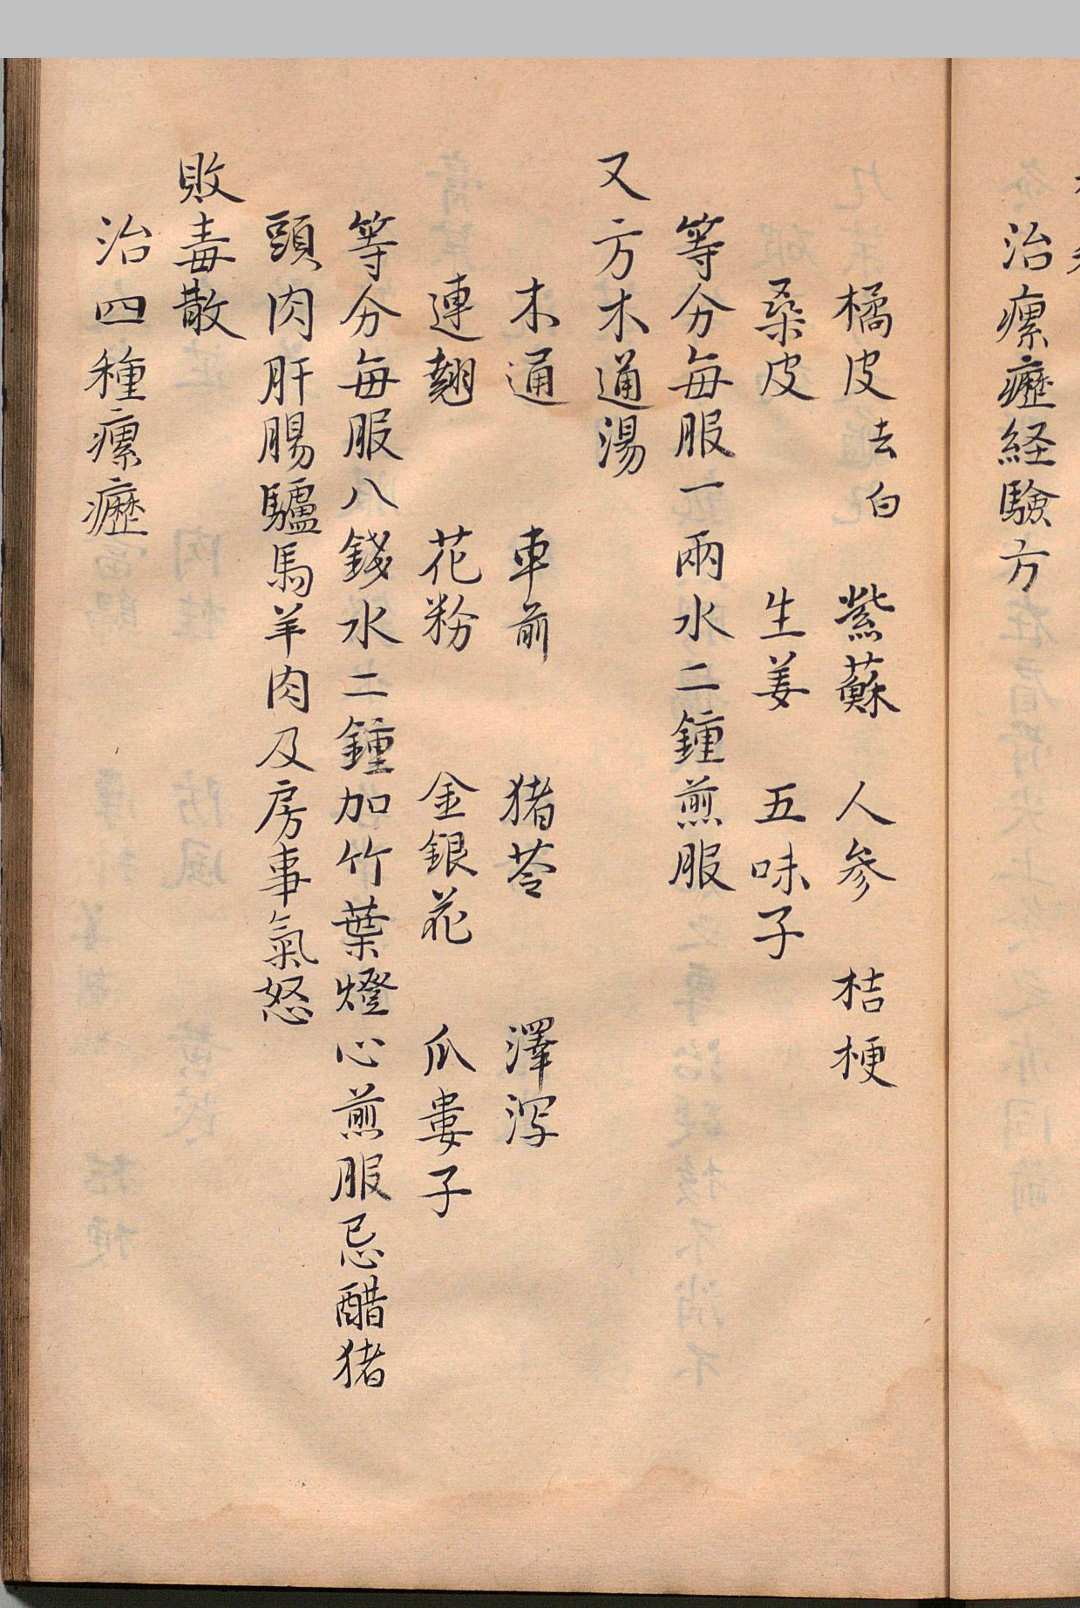 治瘰癧経驗方
橘皮去白 紫蘇 人參 桔梗
桑皮 生姜 五味子
等分每服一兩水二鍾煎服
又方木通湯
木通 車前 猪苓 澤泻
連翹 花粉 金銀花 瓜婁子
等分每服八錢水二鍾加竹葉燈心煎服忌醋猪
頭肉肝腸驢馬羊肉及房事氣怒
敗毒散
治四種瘰癧